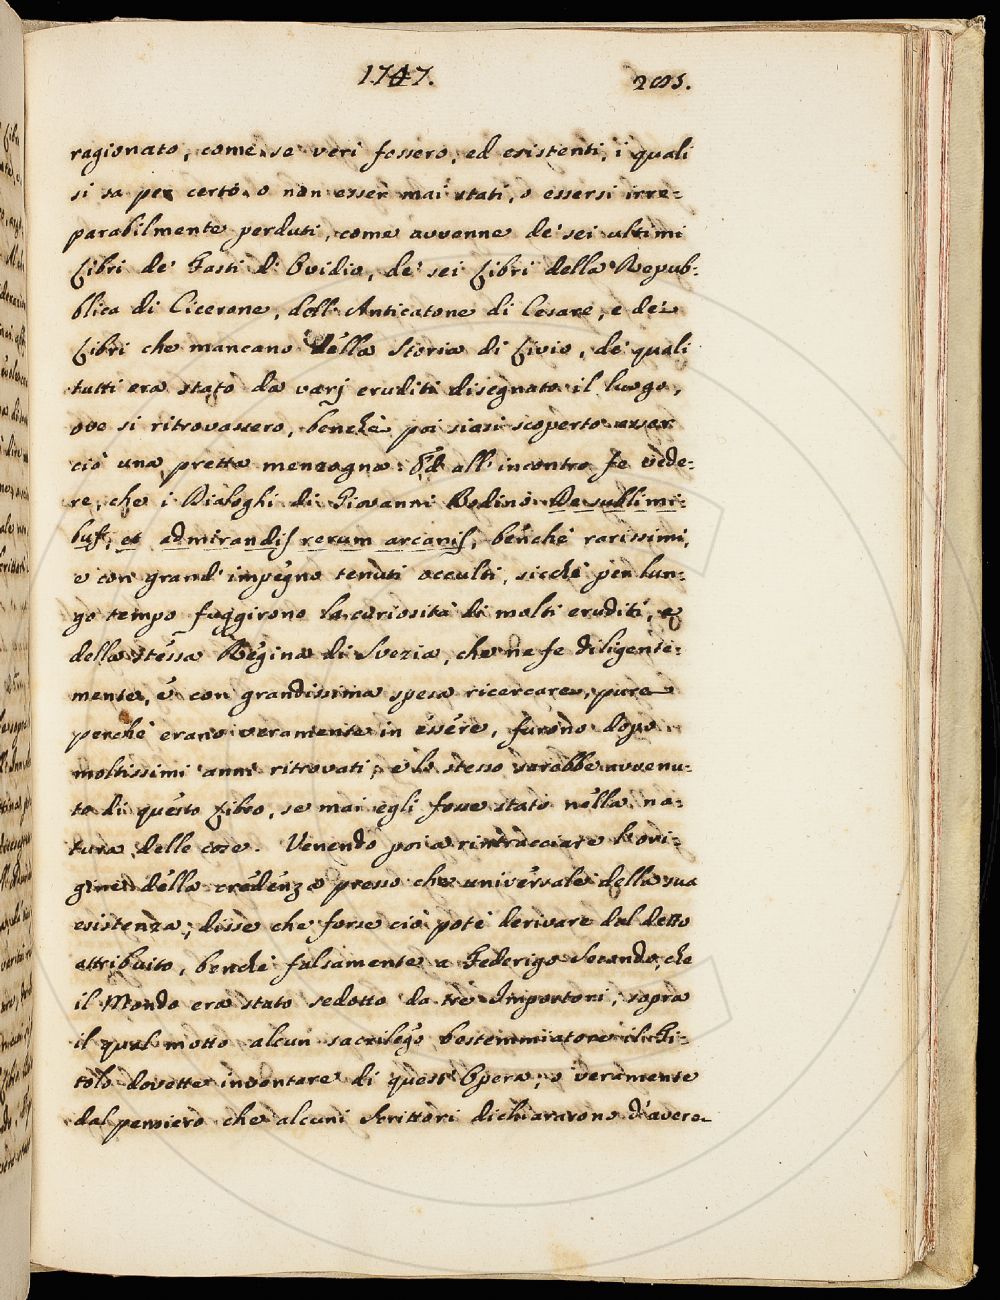 1747. 205.
ragionato, come se veri fossero, ed esistenti, i quali
si sa per certo, o non esser mai stati, o essersi irre=
parabilmente perduti, come avvenne de' sei ultimi
Libri de' Fasti di Ovidio, de' sei Libri della Repub=
blica di Cicerone, dell'Anticatone di Cesare, e dei
Libri che mancano della Storia di Livio, de' quali
tutti era stato da varj eruditi disegnato il luogo,
ove si ritrovassero, benchè poi siasi scoperto esser
ciò una pretta menzogna: Ed all'incontro fe vede=
re, che i Dialoghi di Giovanni Bodino De sublimi=
bus, et admirandis rerum arcanis, benchè rarissimi,
e con grand'impegno tenuti occulti, sicchè per lun=
go tempo fuggirono la curiosità di molti eruditi, e
della stessa Regina di Svezia, che ne fe diligente=
mente, e con grandissima spesa ricercare, pure
perchè erano veramente in essere, furono dopo
moltissimi anni ritrovati; e lo stesso sarebbe avvenu=
to di questo Libro, se mai egli fosse stato nella na=
tura delle cose. Venendo poi a rintracciare l'ori=
gine della credenza presso che universale della sua
esistenza, disse che forse ciò potè derivare dal detto
attribuito, benchè falsamente a Federigo Secondo, che
il Mondo era stato sedotto da tre Impostori, sopra
il qual motto alcun sacrilego bestemmiatore il Ti=
tolo dovette inventare di quest'Opera; o veramente
dal pensiero che alcuni Scrittori dichiararono d'avere